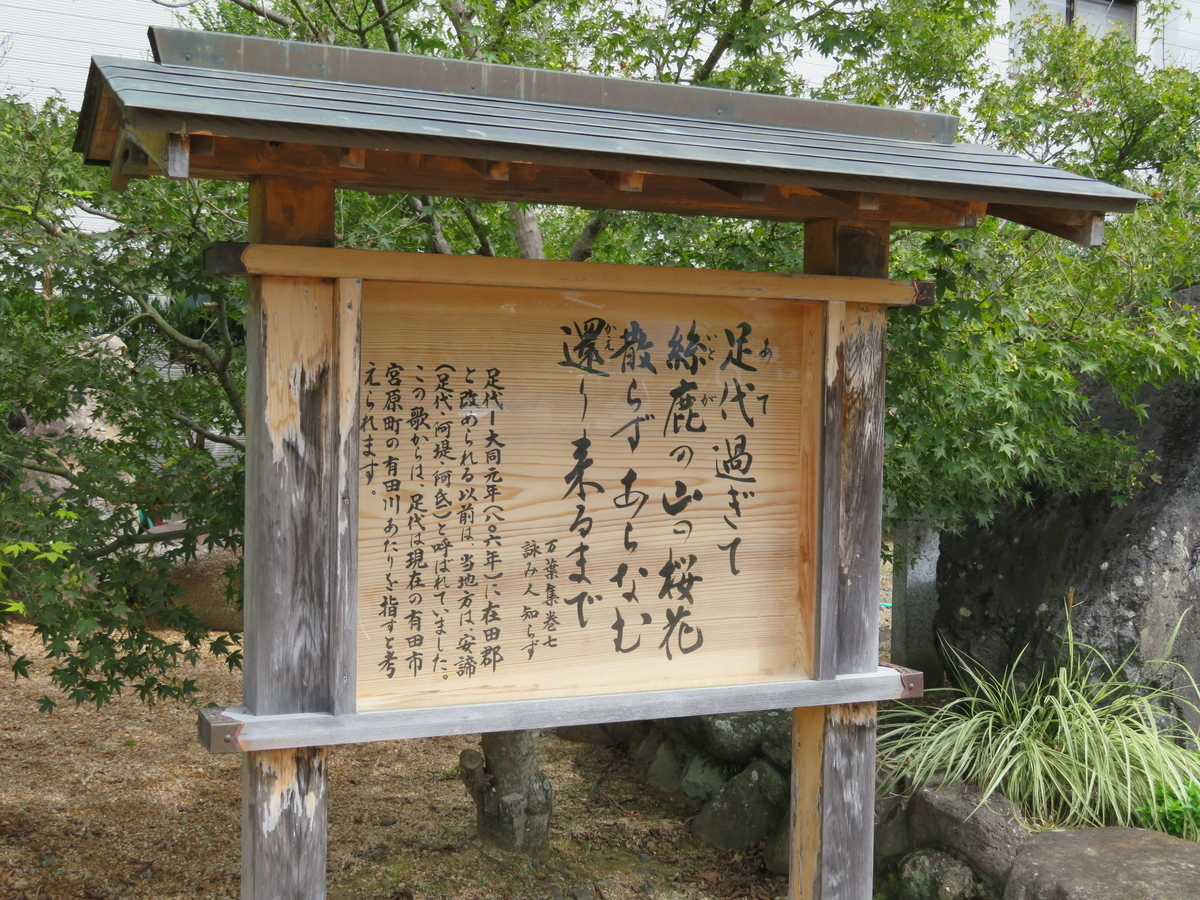 足代過ぎて
絲鹿の山の桜花
散らずあらなむ
還り来るまで
万葉集巻七
詠み人知らず
足代ー大同元年(八〇六年)に在田郡
と改められる以前は、当地方は、安諦
(足代・阿堤・阿氐)と呼ばれていました。
この歌からは、足代は現在の有田市
宮原町の有田川あたりを指すと考
えられます。